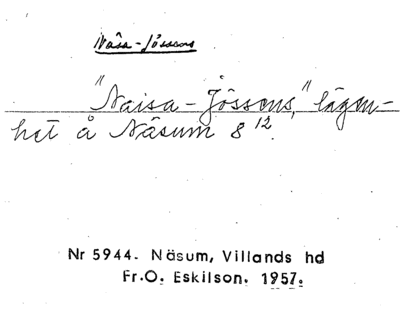 Näsa-Jössens
"Naisa-Jössens," lägen-
het å Näsum 8¹².
Nr 5944. Näsum, Villands hd
Fr.O. Eskilson. 1957.